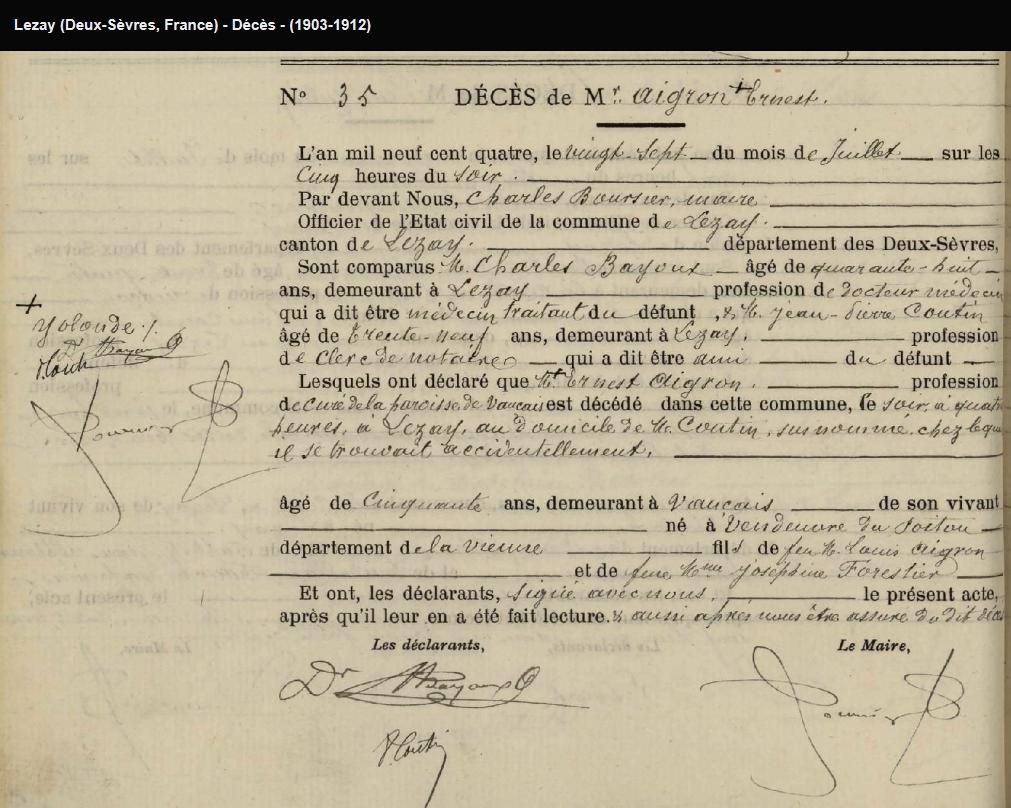 Lezay (Deux-Sèvres, France) - Décès - (1903-1912)
N° 35 DÉCÈS de Mr. Aigron + Ernest.
L'an mil neuf cent quatre, le vingt-sept du mois de Juillet sur les
Cinq heures du soir.
Par devant Nous, Charles Boursier, maire
Officier de l'Etat civil de la commune de Lezay.
canton de Lezay. département des Deux-Sèvres,
Sont comparus M. Charles Bayoux âgé de quarante-huit
ans, demeurant à Lezay profession de docteur médecin
qui a dit être médecin traitant du défunt, & M. Jean-Pierre Coutin
âgé de trente-neuf ans, demeurant à Lezay. profession
de Clerc de notaire qui a dit être ami du défunt
Lesquels ont déclaré que M. + Ernest Aigron. profession
de curé de la paroisse de Vançais est décédé dans cette commune, le soir, à quatre
heures, à Lezay, au domicile de M. Coutin, susnommé, chez lequel
il se trouvait accidentellement.
+
Yolande /.
Dr Bayoux
PCoutin
Boursier
âgé de Cinquante ans, demeurant à Vançais de son vivant
né à Vendeuvre du Poitou
département de la Vienne fils de feu M. Louis Aigron
et de feue Mme Joséphine Forestier
Et ont, les déclarants, signé avec nous, le présent acte,
après qu'il leur en a été fait lecture. & aussi après nous être assuré du dit décès
Les déclarants, Le Maire,
Dr Bayoux Boursier
PCoutin